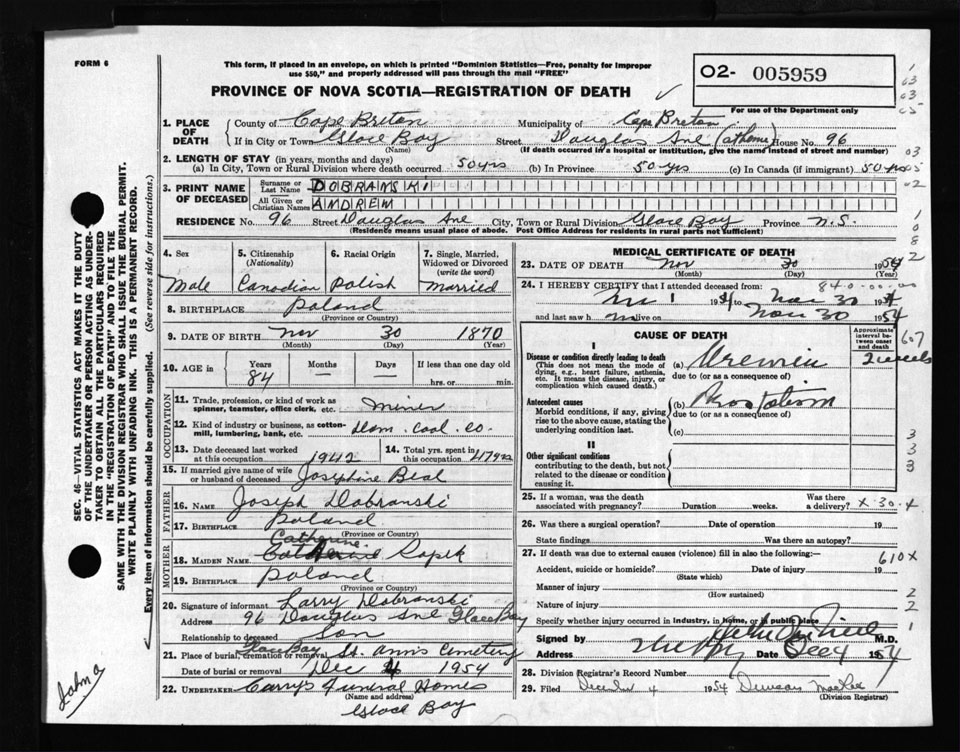 FORM 6
This form, if placed in an envelope, on which is printed "Dominion Statistics—Free, penalty for improper
use $50," and properly addressed will pass through the mail "FREE"
PROVINCE OF NOVA SCOTIA—REGISTRATION OF DEATH
O2- 005959
For use of the Department only
1. PLACE OF DEATH { County of Cape Breton Municipality of Cape Breton
If in City or Town Glace Bay Street Douglas Ave (at home) House No. 96
(Name) (If death occurred in a hospital or institution, give the name instead of street and number)
2. LENGTH OF STAY (in years, months and days)
(a) In City, Town or Rural Division where death occurred 50 yrs (b) In Province 50 yrs (c) In Canada (if immigrant) 50 yrs
3. PRINT NAME OF DECEASED { Surname or Last Name DOBRANSKI
All Given or Christian Names ANDREW
RESIDENCE No. 96 Street Douglas Ave City, Town or Rural Division Glace Bay Province N.S.
(Residence means usual place of abode. Post Office Address for residents in rural parts not sufficient)
4. Sex Male
5. Citizenship (Nationality) Canadian
6. Racial Origin Polish
7. Single, Married, Widowed or Divorced (write the word) Married
8. BIRTHPLACE Poland
(Province or Country)
9. DATE OF BIRTH Nov 30 1870
(Month) (Day) (Year)
10. AGE in Years 84 Months Days If less than one day
hrs. or min.
OCCUPATION
11. Trade, profession, or kind of work as
spinner, teamster, office clerk, etc. Miner
12. Kind of industry or business, as cotton-
mill, lumbering, bank, etc. Dom. Coal Co.
13. Date deceased last worked at this occupation 1942
14. Total yrs. spent in this occupation 47 yrs
15. If married give name of wife
or husband of deceased Josephine Beal
FATHER
16. Name Joseph Dobranski
17. BIRTHPLACE Poland
(Province or Country)
MOTHER
Catherine
18. MAIDEN NAME Catherine Sapek
19. BIRTHPLACE Poland
(Province or Country)
20. Signature of informant Larry Dobranski
Address 96 Douglas Ave Glace Bay
Relationship to deceased Son
21. Place of burial, cremation or removal Glace Bay St. Ann's Cemetery
Date of burial or removal Dec 4 1954
22. UNDERTAKER Curry's Funeral Homes
(Name and address)
Glace Bay
MEDICAL CERTIFICATE OF DEATH
23. DATE OF DEATH Nov 30 1954
(Month) (Day) (Year)
840-00-00
24. I HEREBY CERTIFY that I attended deceased from:
Nov 1 1954 to Nov 30 1954
and last saw h m alive on Nov 30 1954
CAUSE OF DEATH
Approximate interval between onset and death
I
Disease or condition directly leading to death
(This does not mean the mode of dying, e.g., heart failure, asthenia, etc. It means the disease, injury, or complication which caused death.)
(a) Uremia 2 weeks
due to (or as a consequence of)
Antecedent causes
Morbid conditions, if any, giving rise to the above cause, stating the underlying condition last.
(b) Prostatism
due to (or as a consequence of)
(c)
II
Other significant conditions
contributing to the death, but not related to the disease or condition causing it.
25. If a woman, was the death associated with pregnancy? Duration weeks. Was there a delivery? x-30-x
26. Was there a surgical operation? Date of operation 19
State findings Was there an autopsy?
27. If death was due to external causes (violence) fill in also the following:—
610x
Accident, suicide or homicide? Date of injury 19
(State which)
Manner of injury
(How sustained)
Nature of injury
Specify whether injury occurred in industry, in home, or in public place
Signed by M.D.
Address Date Dec 4 1954
28. Division Registrar's Record Number
29. Filed December 4 1954 Duncan MacRae
(Division Registrar)
607
SEC. 46—VITAL STATISTICS ACT MAKES IT THE DUTY
OF THE UNDERTAKER OR PERSON ACTING AS UNDER-
TAKER TO OBTAIN ALL THE PARTICULARS REQUIRED
IN THE "REGISTRATION OF DEATH" AND TO FILE THE
SAME WITH THE DIVISION REGISTRAR WHO SHALL ISSUE THE BURIAL PERMIT.
WRITE PLAINLY WITH UNFADING INK. THIS IS A PERMANENT RECORD.
Every item of information should be carefully supplied. (See reverse side for instructions.)
John A